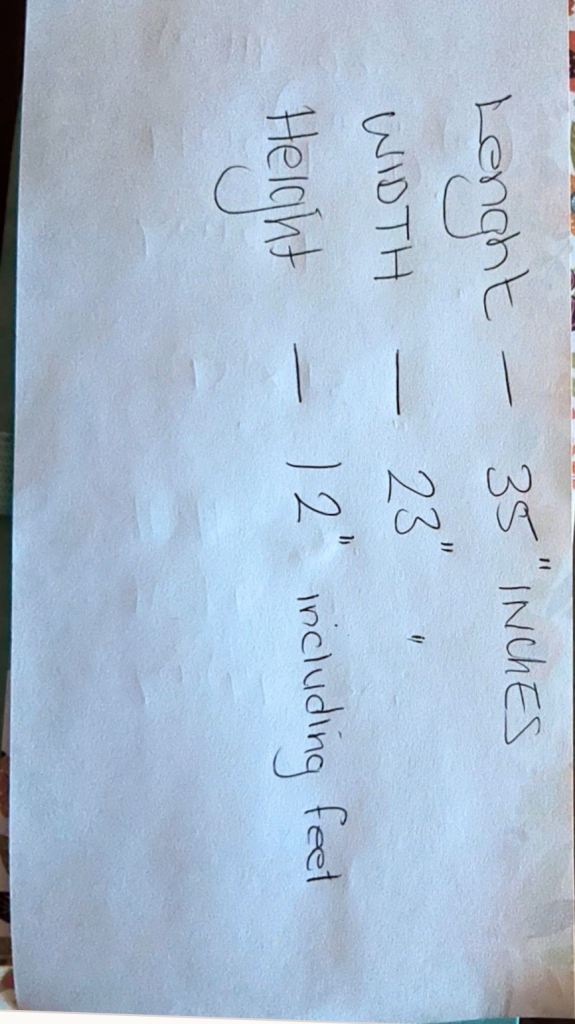 Lenght — 35" INChES
WIDTH — 23" "
Height — 12" including feet